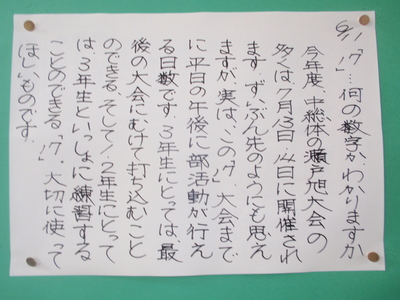 6/1「17」…何の数字かわかりますか
今年度、中総体の瀬戸旭大会の
多くは7月13日・14日に開催され
ます。ずいぶん先のようにも思え
ますが、実は、この「17」、大会まで
に平日の午後に部活動が行え
る日数です。3年生にとっては、最
後の大会にむけて打ち込むこと
のできる、そして1、2年生にとって
は、3年生といっしょに練習する
ことのできる「17」。大切に使って
ほしいものです。